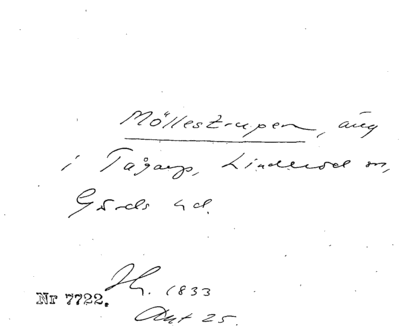 Möllestrupen, äng
i Tågarp, Linderöd sn,
Gärds hd.
Nr 7722. Jh. 1833
Akt 25.